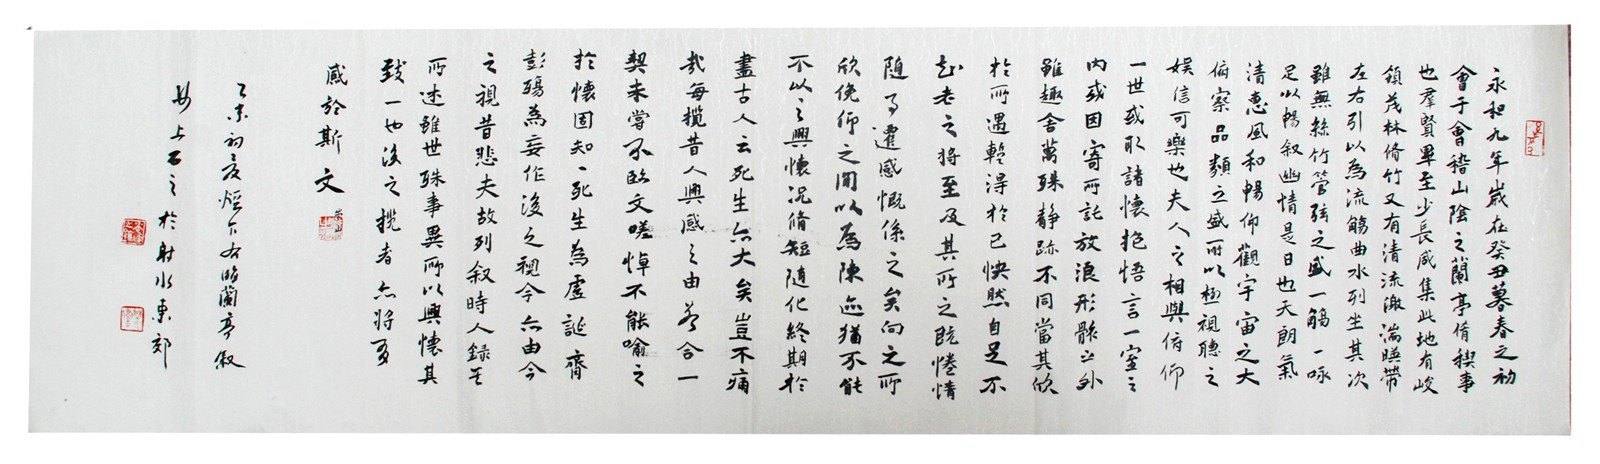 永和九年歲在癸丑暮春之初
會于會稽山陰之蘭亭脩稧事
也羣賢畢至少長咸集此地有峻
領茂林脩竹又有清流激湍暎帶
左右引以為流觴曲水列坐其次
雖無絲竹管弦之盛一觴一咏
足以暢叙幽情是日也天朗氣
清惠風和暢仰觀宇宙之大
俯察品類之盛所以極視聽之
娛信可樂也夫人之相與俯仰
一世或取諸懷抱悟言一室之
內或因寄所託放浪形骸之外
雖趣舍萬殊靜躁不同當其欣
於所遇輊得於己怏然自足不
知老之將至及其所之既惓情
隨事遷感慨係之矣向之所
欣俛仰之間以為陳迹猶不能
不以之興懷況脩短隨化終期於
盡古人云死生亦大矣豈不痛
哉每攬昔人興感之由若合一
契未嘗不臨文嗟悼不能喻之
於懷固知一死生為虛誕齊
彭殤為妄作後之視今亦由今
之視昔悲夫故列叙時人錄其
所述雖世殊事異所以興懷其
致一也後之攬者亦將有
感於斯文
初夏燈下 臨蘭亭叙
上石之於射水東郊